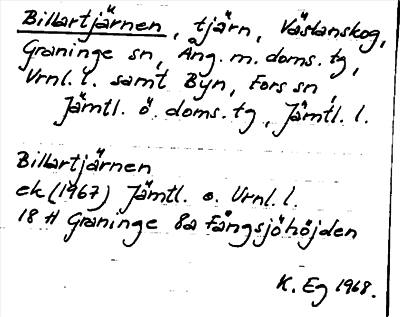 Billartjärnen, tjärn, Västanskog,
Graninge sn, Ång. m. doms. tg,
Vrnl. l. samt Byn, Fors sn,
Jämtl. ö. doms. tg, Jämtl. l.
Billartjärnen
ek (1967) Jämtl. o. Vrnl. l.
18 H Graninge 8a Fångsjöhöjden
K. Eg 1968.